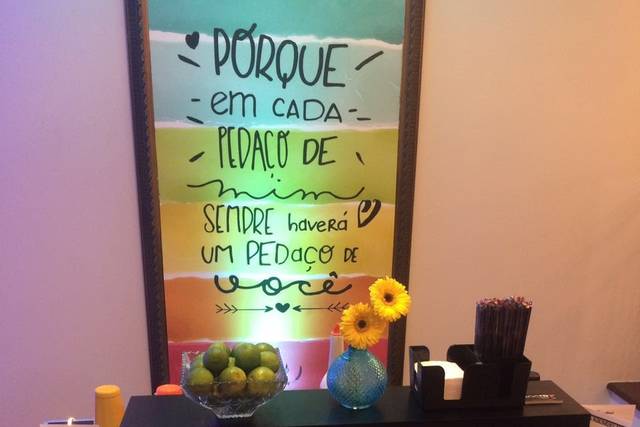 PORQUE
em CADA
PEDAÇO DE
mim
SEMPRE haverá
UM PEDAÇO DE
você